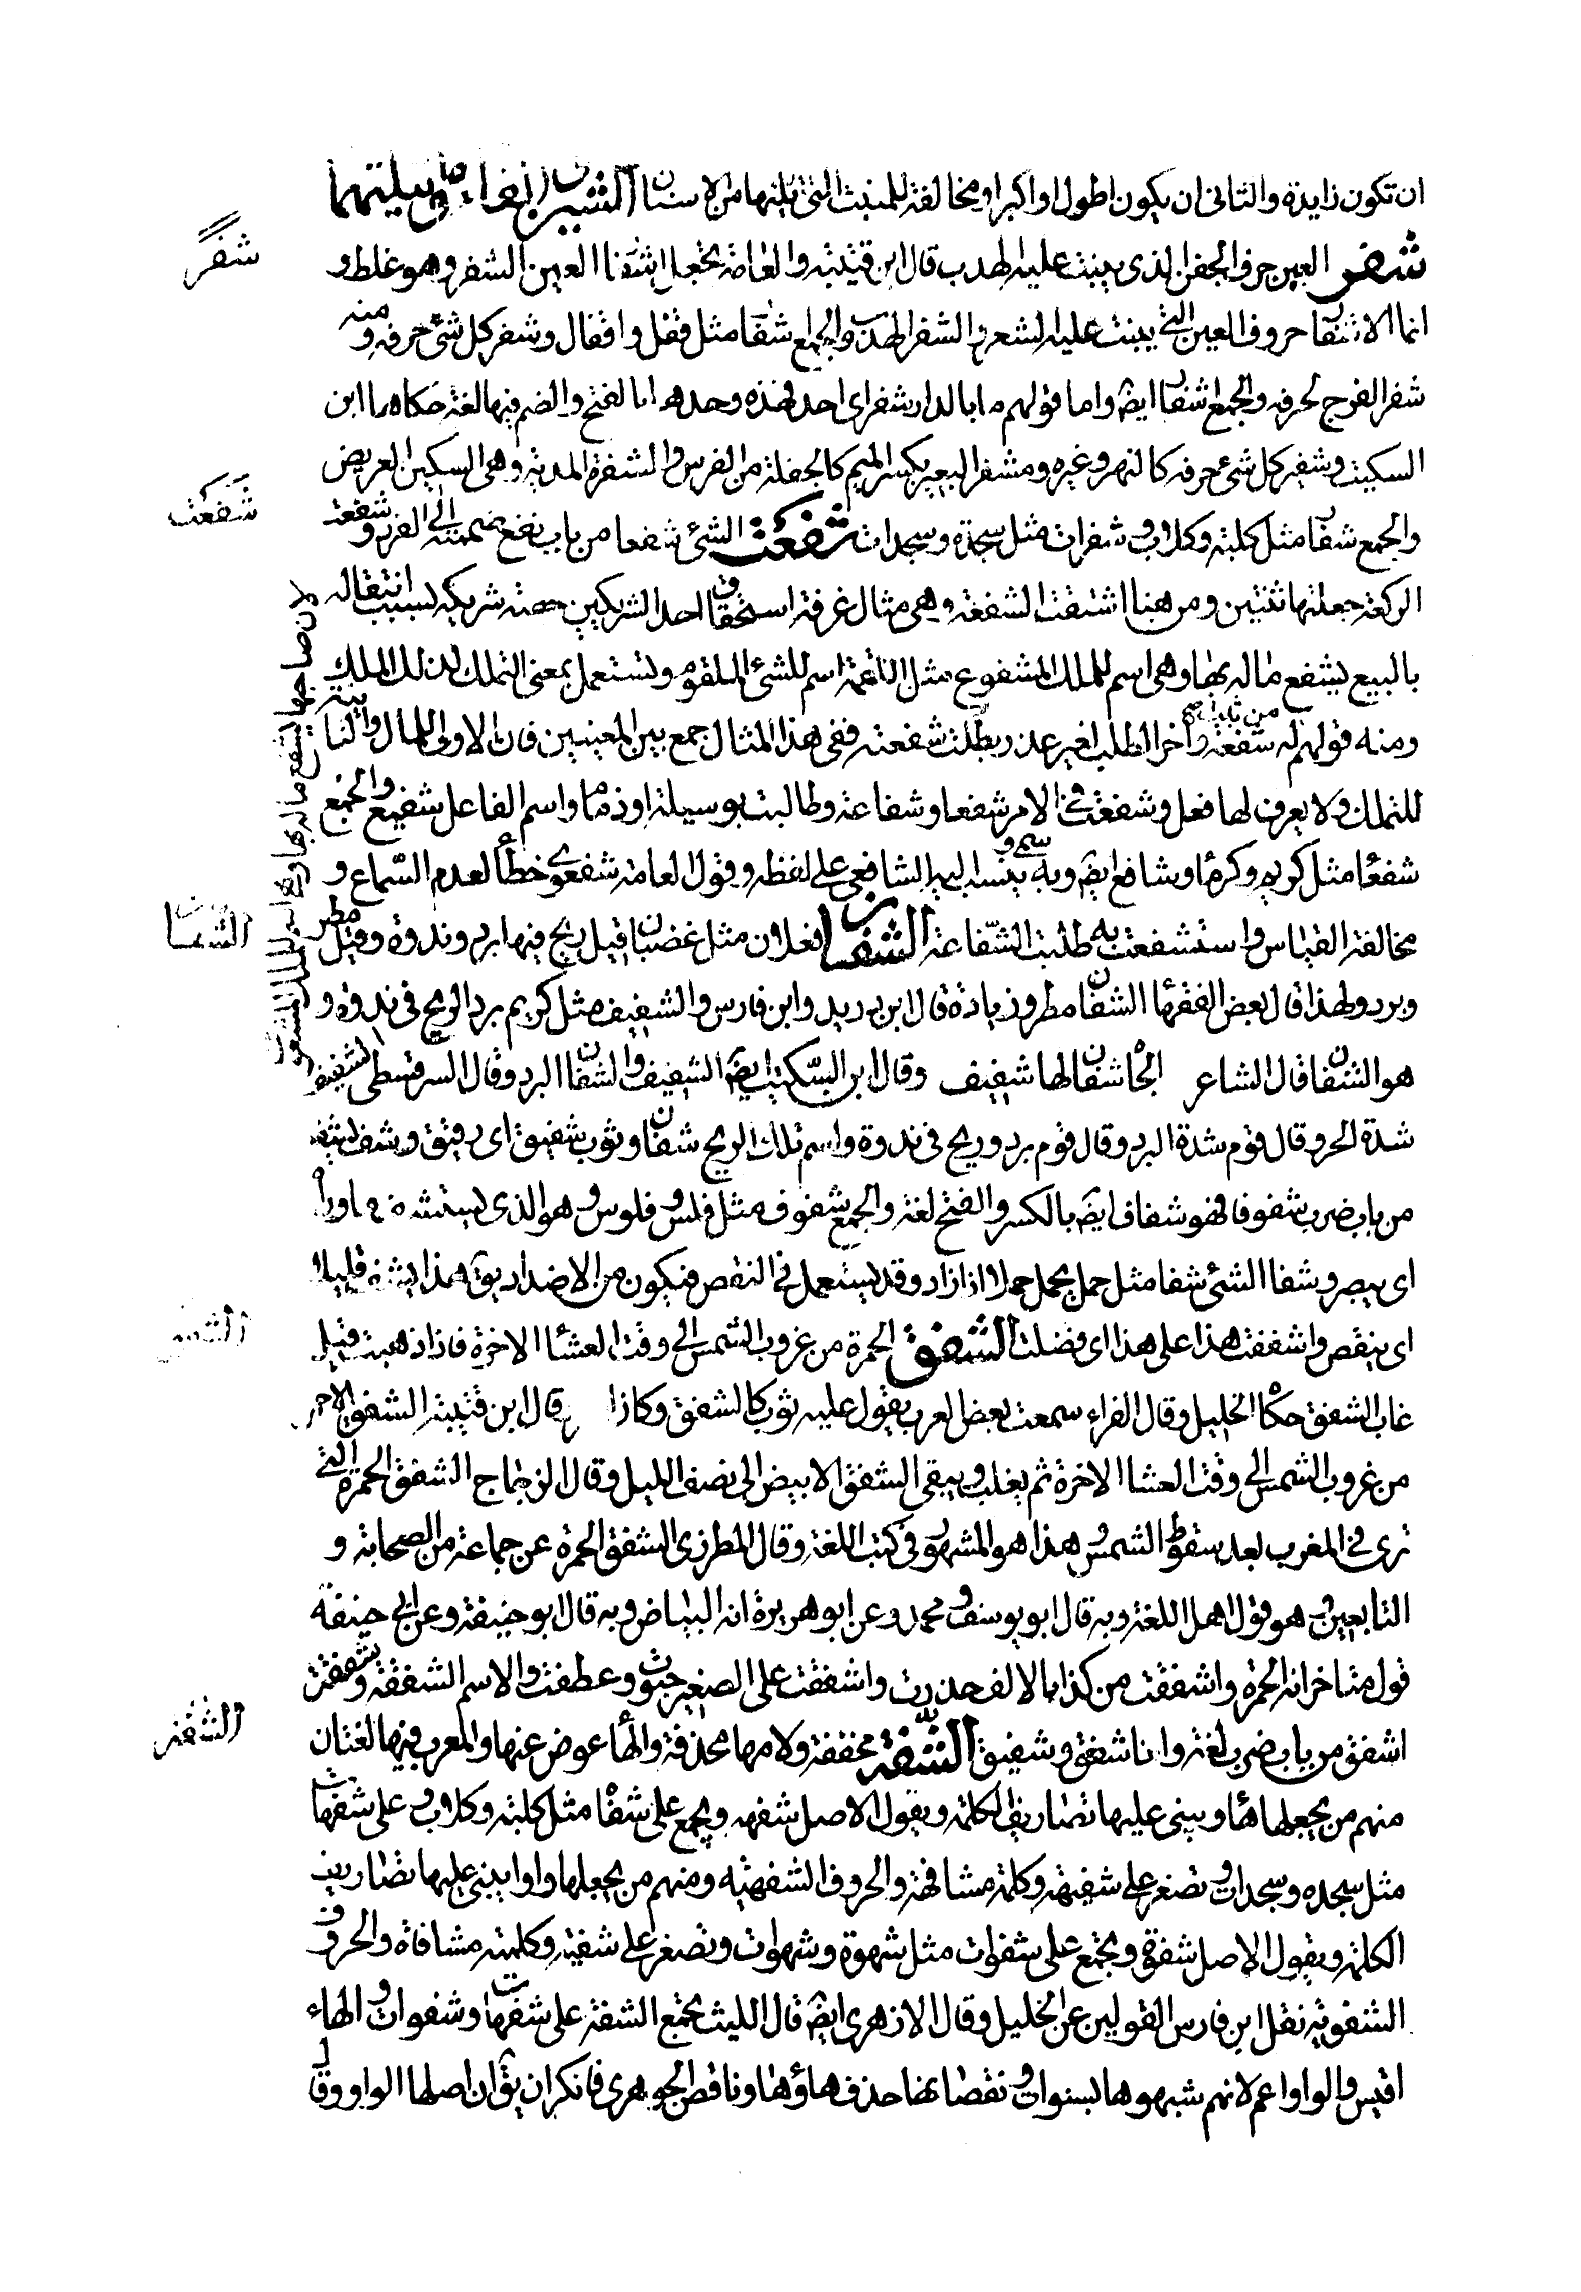 ان تكون زايدة والثانى ان يكون اطول او اكبر او مخالفة للمنبت التى تليها من الاسنان الشين الفاء وما يثلثهما
شفر العين حرف الجفن الذى ينبت عليه الهدب قال ابن قتيبة والعامة تجعل اشفار العين الشفر وهو غلط و
انما الاشفار حروف العين التى ينبت عليها الشعر والشفر الهدب والجمع اشفار مثل قفل واقفال وشفر كل شئ حرفه ومنه
شفر الفرج لحرفه والجمع اشفار ايضا واما قولهم ما بالدار شفر اى احد فهذه وحدها بالفتح والضم فيها لغة حكاهما ابن
السكيت وشفير كل شئ حرفه كالنهر وغيره ومشفر البعير بكسر الميم كالجحفلة من الفرس والشفرة المدية وهى السكين العريض
والجمع شفار مثل كلبة وكلاب وشفرات مثل سجدة وسجدات شفعت الشئ شفعا من باب نفع ضممته الى الفرد وشفعت
الركعة جعلتها ثنتين ومن هنا اشتقت الشفعة وهى مثال غرفة استحقاق احد الشريكين حصة شريكه بسبب انتقاله
بالبيع يشفع ماله بها وهى اسم للملك المشفوع مثل اللقمة اسم للشئ الملقوم وتستعمل بمعنى التملك لذلك الملك
ومنه قولهم من ثبت له شفعة واخر الطلب لغير عذر بطلت شفعته ففى هذا المثال جمع بين المعنيين فان الاولى للمال والثانية
للتملك ولا يعرف لها فعل وشفعت فى الامر شفعا وشفاعة وطالبت بوسيلة او ذمام واسم الفاعل شفيع والجمع
شفعاء مثل كريم وكرماء وشافع ايضا وبه سمى وينسب اليه الشافعى على لفظه وقول العامة شفعوى خطأ لعدم السماع و
مخالفة القياس واستشفعت به طلبت الشفاعة الشفان فعلان مثل غضبان قيل ريح فيها برد وندوة وقيل مطر
وبرد ولهذا قال بعض الفقهاء الشفان مطر وزيادة قال ابن دريد وابن فارس والشفيف مثل كريم برد الريح فى ندوة و
هو الشفان قال الشاعر الجا شفان لها شفيف وقال ابن السكيت ايضا الشفيف والشفان البرد وقال السرقسطى الشفيف
شدة الحر وقال قوم شدة البرد وقال قوم برد وريح فى ندوة واسم تلك الريح شفان وثوب شفيق اى رقيق وشف يشف
من باب ضرب شفوفا فهو شفاف ايضا بالكسر والفتح لغة والجمع شفوف مثل فلس وفلوس وهو الذى يستشف ما وراه
اى يبصر وشف الشئ شفا مثل حمل يحمل حملا اذا زاد وقد يستعمل فى النقص فيكون من الاضداد يق هذا يشف قليلا
اى ينقص واشففت هذا على هذا اى فضلت الشفق الحمرة من غروب الشمس الى وقت العشاء الاخرة فاذا ذهبت قيل
غاب الشفق حكاه الخليل وقال الفراء سمعت بعض العرب يقول عليه ثوب كالشفق وكان وقال ابن قتيبة الشفق الاحمر
من غروب الشمس الى وقت العشاء الاخرة ثم يغلب ويبقى الشفق الابيض الى نصف الليل وقال الزجاج الشفق الحمرة التى
ترى فى المغرب بعد سقوط الشمس وهذا هو المشهور فى كتب اللغة وقال المطرزى الشفق الحمرة عن جماعة من الصحابة و
التابعين وهو قول اهل اللغة وبه قال ابو يوسف ومحمد وعن ابو هريرة انه البياض وبه قال ابو حنيفة وعن ابى حنيفة
قول متاخر انه الحمرة واشفقت من كذا بالالف حذرت واشفقت على الصغير حنوت وعطفت والاسم الشفقة وشفقت
اشفق من باب ضرب لغة وانا شفق وشفيق الشفة مخففة ولامها محذوفة والهاء عوض عنها وللعرب فيها لغتان
منهم من يجعلها هاء ويبنى عليها تصاريف الكلمة ويقول الاصل شفهة وتجمع على شفاه مثل كلبة وكلاب وعلى شفهات
مثل سجده وسجدات وتصغر على شفيهة وكلمة مشافهة والحروف الشفهية ومنهم من يجعلها واوا يبنى عليها تصاريف
الكلمة ويقول الاصل شفوة وتجمع على شفوات مثل شهوة وشهوات وتصغر على شفية وكلمته مشافاة والحروف
الشفوية نقل ابن فارس القولين عن الخليل وقال الازهرى ايضا قال الليث تجمع الشفة على شفهات وشفوات والهاء
اقيس والواو اعم لانهم شبهوها بسنوات ونقصانها حذف هاؤها وناقض الجوهرى فانكر ان يق ان اصلها الواو وقال
شفر
شفعت
لان صاحبها يشفع ماله بها وهى اسم للملك المشفوع
الشفان
الشفق
الشفة